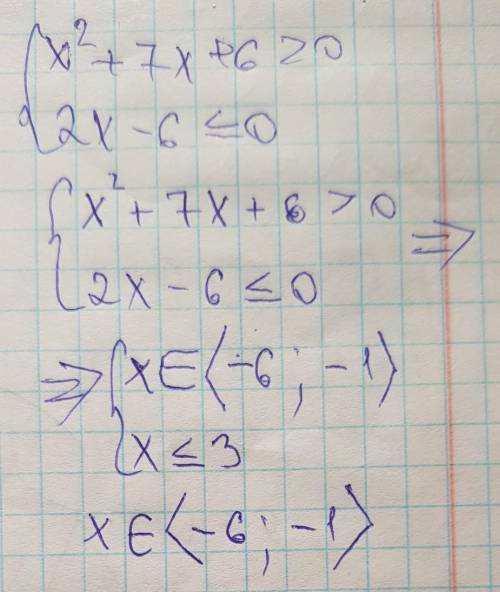 { x² + 7x + 6 ≥ 0
2x - 6 ≤ 0
{ x² + 7x + 6 > 0 ⇒
2x - 6 ≤ 0
⇒ { x ∈ ⟨-6; -1⟩
x ≤ 3
x ∈ ⟨-6; -1⟩